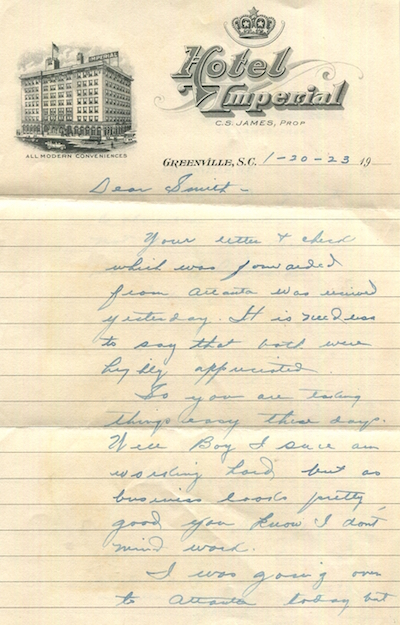 IMPERIAL
Hotel
Imperial
C.S. JAMES, PROP
ALL MODERN CONVENIENCES
GREENVILLE, S.C. 1-20-23 19
Dear Smith -
Your letter & check
which was forwarded
from Atlanta was received
yesterday. It is needless
to say that both were
highly appreciated.
So you are taking
things easy these days.
Well Boy I sure am
working hard but as
business looks pretty
good you know I don't
mind work.
I was going over
to Atlanta today but